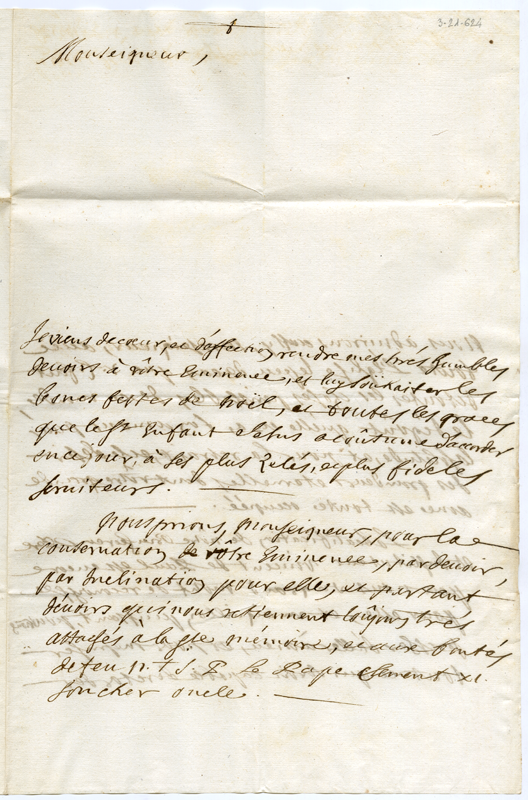 †
3-21-624
Monseigneur,
Je viens de cœur, et d'affection rendre mes très humbles
devoirs à vôtre Eminence, et luy souhaiter les
bones festes de noël, et toutes les graces
que le st Enfant Jesus a coûtume d'accorder
en ce jour, à ses plus zelés, et plus fideles
serviteurs.
Nous prions, Monseigneur, pour la
conservation de vôtre Eminence, par devoir,
par Inclination pour elle, et par tant
devoirs qui nous retiennent toûjours très
attachés à la ste memoire, et aux bontés
de feu N. T. S. P. le Pape Clement XI.
son cher oncle.